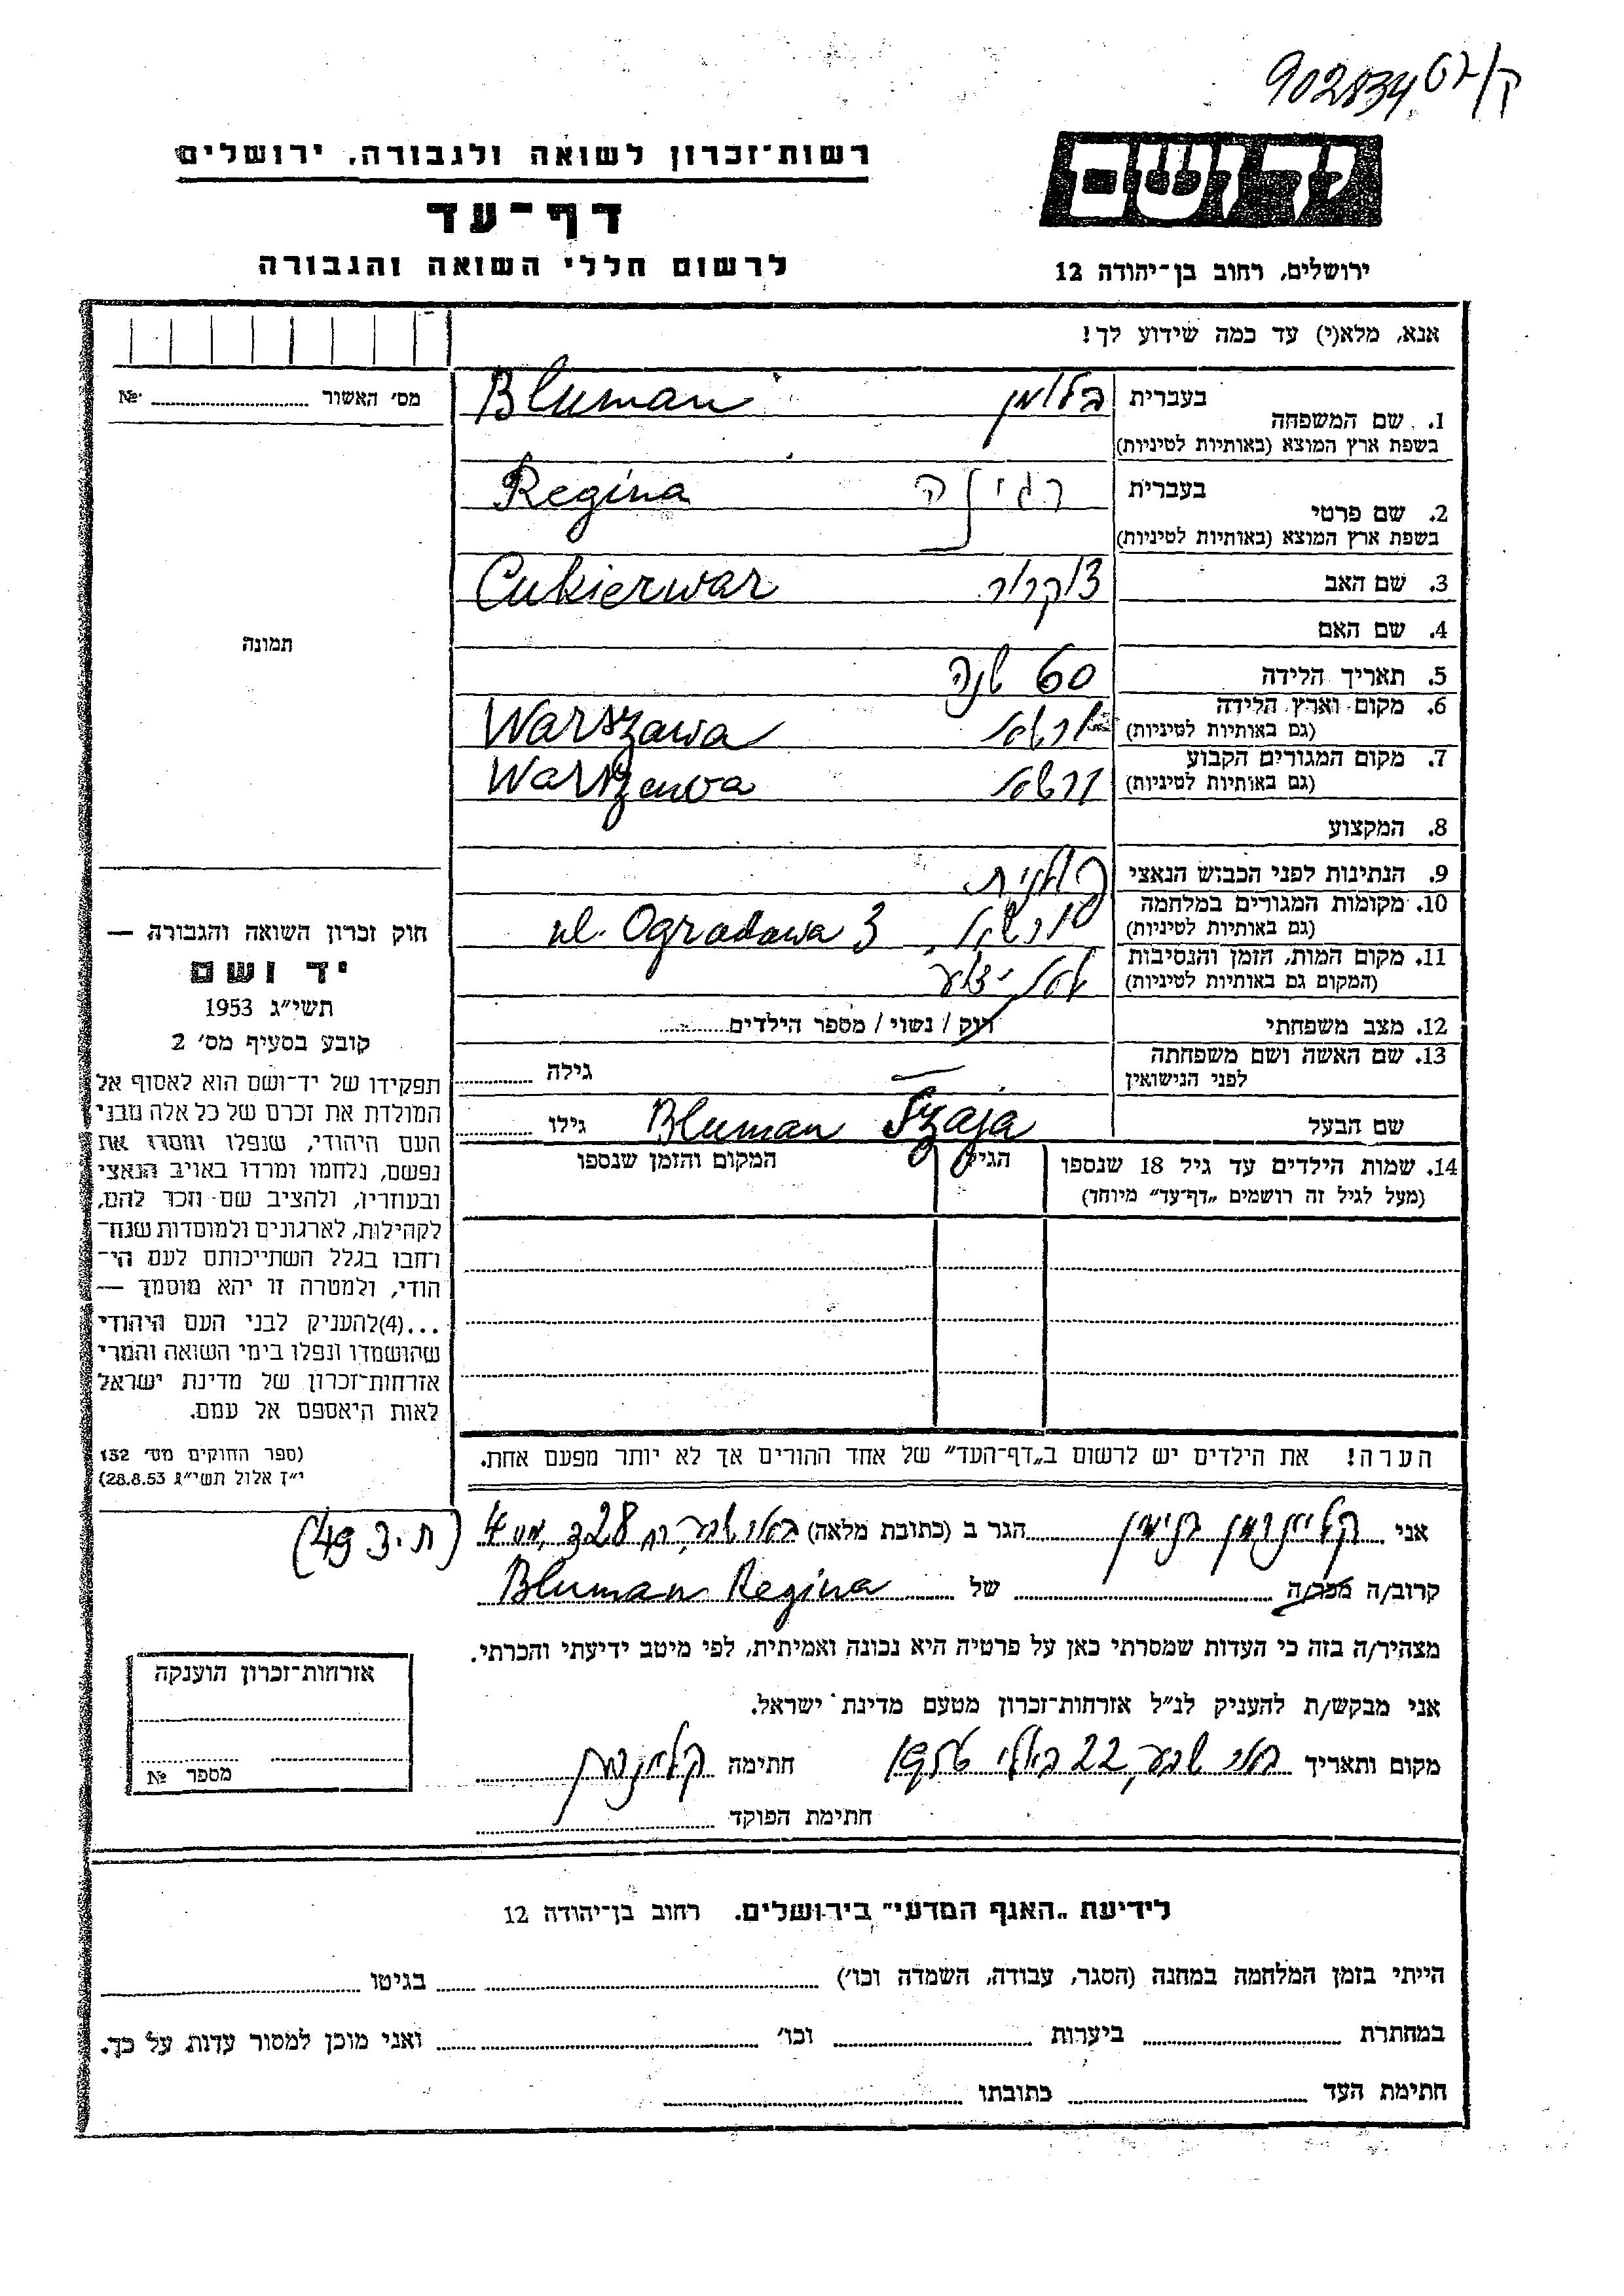 ק/פט 902834
רשות־זכרון לשואה ולגבורה. ירושלים
דף־עד
לרשום חללי השואה והגבורה
יד ושם
ירושלים, רחוב בן־יהודה 12
אנא, מלא(י) עד כמה שידוע לך!
מס׳ האשור № ..........
1. שם המשפחה בעברית בלומן Bluman
בשפת ארץ המוצא (באותיות לטיניות)
2. שם פרטי בעברית רגינה Regina
בשפת ארץ המוצא (באותיות לטיניות)
3. שם האב צוקרור Cukierwar
4. שם האם
5. תאריך הלידה 60 שנה
6. מקום וארץ הלידה ורשה Warszawa
(גם באותיות לטיניות)
7. מקום המגורים הקבוע ורשה Warszawa
(גם באותיות לטיניות)
8. המקצוע
9. הנתינות לפני הכבוש הנאצי פולנית
10. מקומות המגורים במלחמה ul. Ogradawa 3
(גם באותיות לטיניות)
11. מקום המות, הזמן והנסיבות לא ידוע
(המקום גם באותיות לטיניות)
12. מצב משפחתי רוק / נשוי / מספר הילדים
13. שם האשה ושם משפחתה לפני הנישואין — גילה
שם הבעל Bluman Szaja גילו
14. שמות הילדים עד גיל 18 שנספו הגיל המקום והזמן שנספו
(מעל לגיל זה רושמים „דף־עד״ מיוחד)
הערה! את הילדים יש לרשום ב„דף־העד״ של אחד ההורים אך לא יותר מפעם אחת.
תמונה
חוק זכרון השואה והגבורה —
יד ושם
תשי״ג 1953
קובע בסעיף מס׳ 2
תפקידו של יד־ושם הוא לאסוף אל
המולדת את זכרם של כל אלה מבני
העם היהודי, שנפלו ומסרו את
נפשם, נלחמו ומרדו באויב הנאצי
ובעוזריו, ולהציב שם וזכר להם,
לקהילות, לארגונים ולמוסדות שנח־
רבו בגלל השתייכותם לעם הי־
הודי, ולמטרה זו יהא מוסמך —
...(4)להעניק לבני העם היהודי
שהושמדו ונפלו בימי השואה והמרי
אזרחות־זכרון של מדינת ישראל
לאות היאספם אל עמם.
(ספר החוקים מס׳ 132
י״ז אלול תשי״ג 28.8.53)
אני קליינרמן בנימין הגר ב (כתובת מלאה) באר שבע, 328 (ת.ד 49)
קרוב/ה מכר/ה של Bluman Regina
מצהיר/ה בזה כי העדות שמסרתי כאן על פרטיה היא נכונה ואמיתית, לפי מיטב ידיעתי והכרתי.
אני מבקש/ת להעניק לנ״ל אזרחות־זכרון מטעם מדינת ישראל.
מקום ותאריך באר שבע, 22 ביולי 1956 חתימה
חתימת הפוקד
אזרחות־זכרון הוענקה
מספר №
לידיעת „האגף המדעי״ בירושלים. רחוב בן־יהודה 12
הייתי בזמן המלחמה במחנה (הסגר, עבודה, השמדה וכו׳) בגיטו
במחתרת ביערות וכו׳ ואני מוכן למסור עדות על כך.
חתימת העד כתובתו